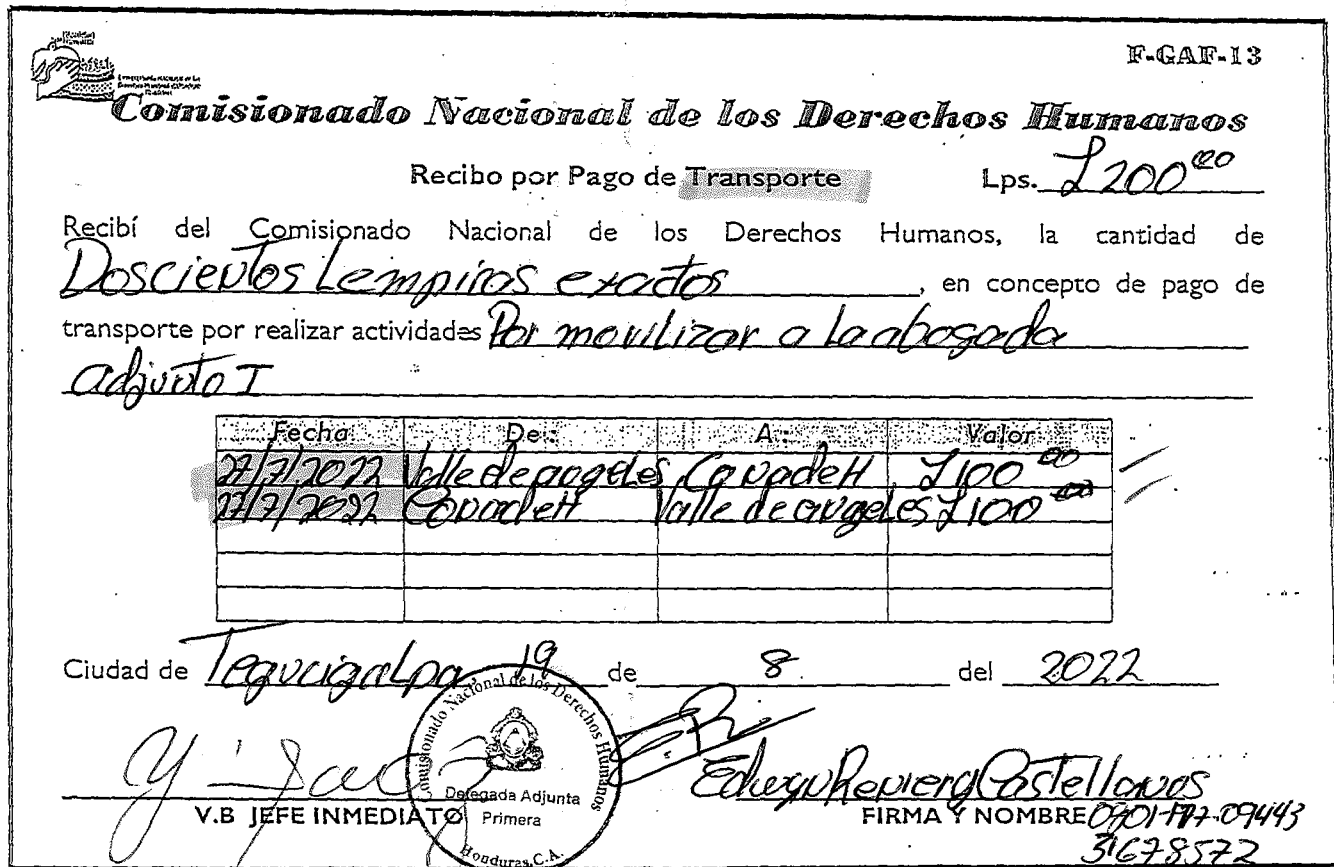 F-GAF-13
Comisionado Nacional de los Derechos Humanos
Recibo por Pago de Transporte Lps. L 200.00
Recibí del Comisionado Nacional de los Derechos Humanos, la cantidad de
Doscientos Lempiras exactos, en concepto de pago de
transporte por realizar actividades Por movilizar a la abogada
adjunto I
Fecha De: A: Valor
27/7/2022 Valle de angeles Conadeh L 100.00
27/7/2022 Conadeh Valle de angeles L 100.00
Ciudad de Tegucigalpa 19 de 8 del 2022
Comisionado Nacional de los Derechos Humanos
Delegada Adjunta
Primera
Honduras, C.A.
Castellanos
V.B JEFE INMEDIATO FIRMA Y NOMBRE
31678572